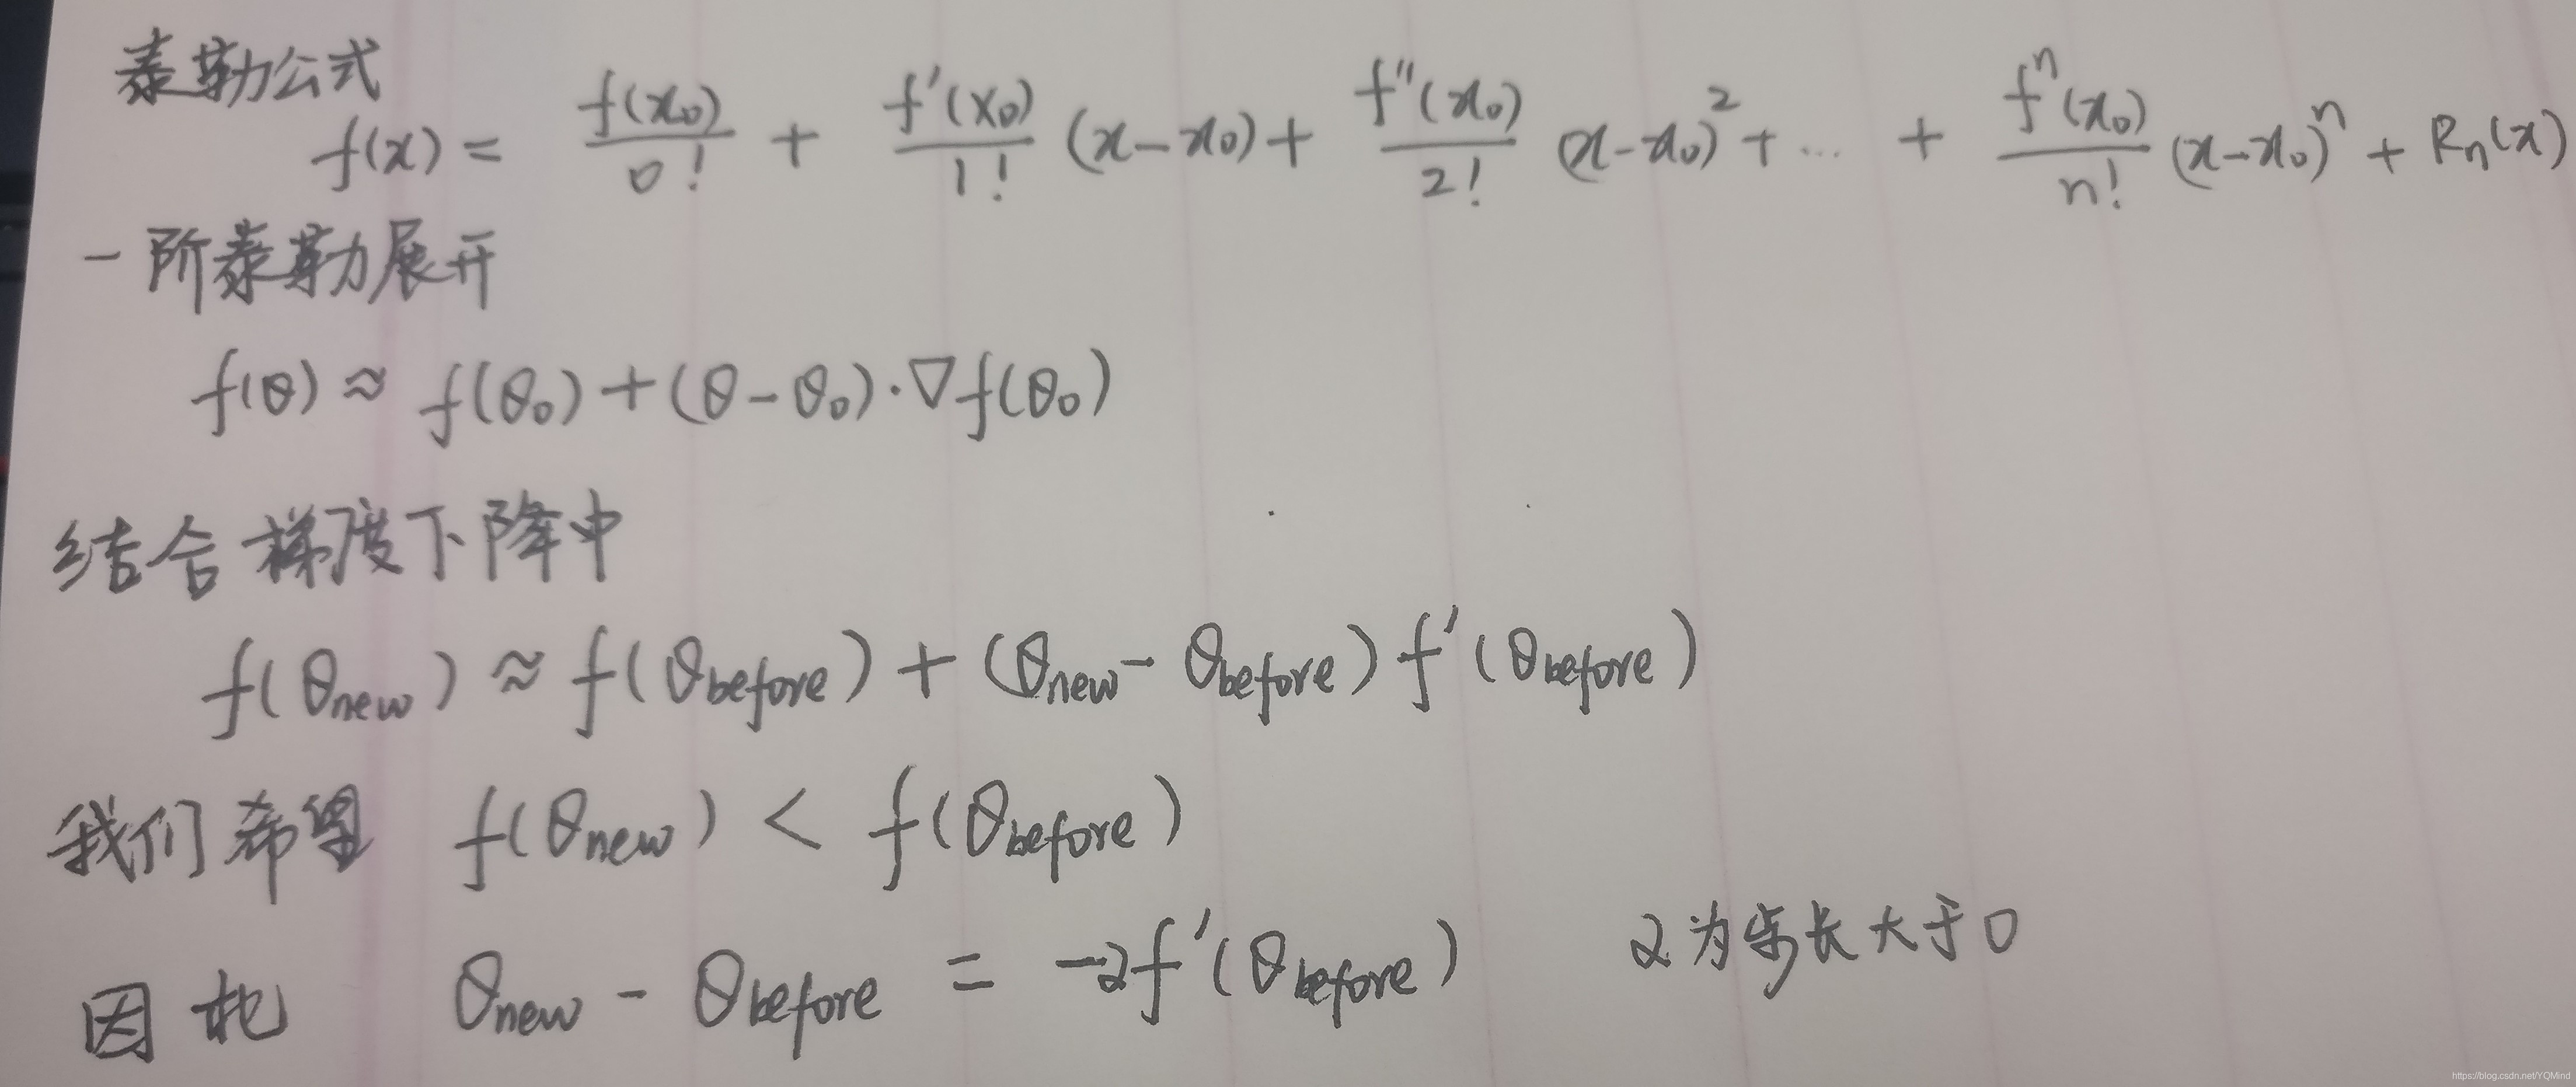 泰勒公式
f(x) = f(x₀)/0! + f'(x₀)/1! (x-x₀) + f''(x₀)/2! (x-x₀)² + ... + fⁿ(x₀)/n! (x-x₀)ⁿ + Rₙ(x)
一阶泰勒展开
f(θ) ≈ f(θ₀) + (θ-θ₀)·∇f(θ₀)
结合梯度下降中
f(θnew) ≈ f(θbefore) + (θnew - θbefore) f'(θbefore)
我们希望 f(θnew) < f(θbefore)
因此 θnew - θbefore = -αf'(θbefore) α为步长大于0
https://blog.csdn.net/YQMind